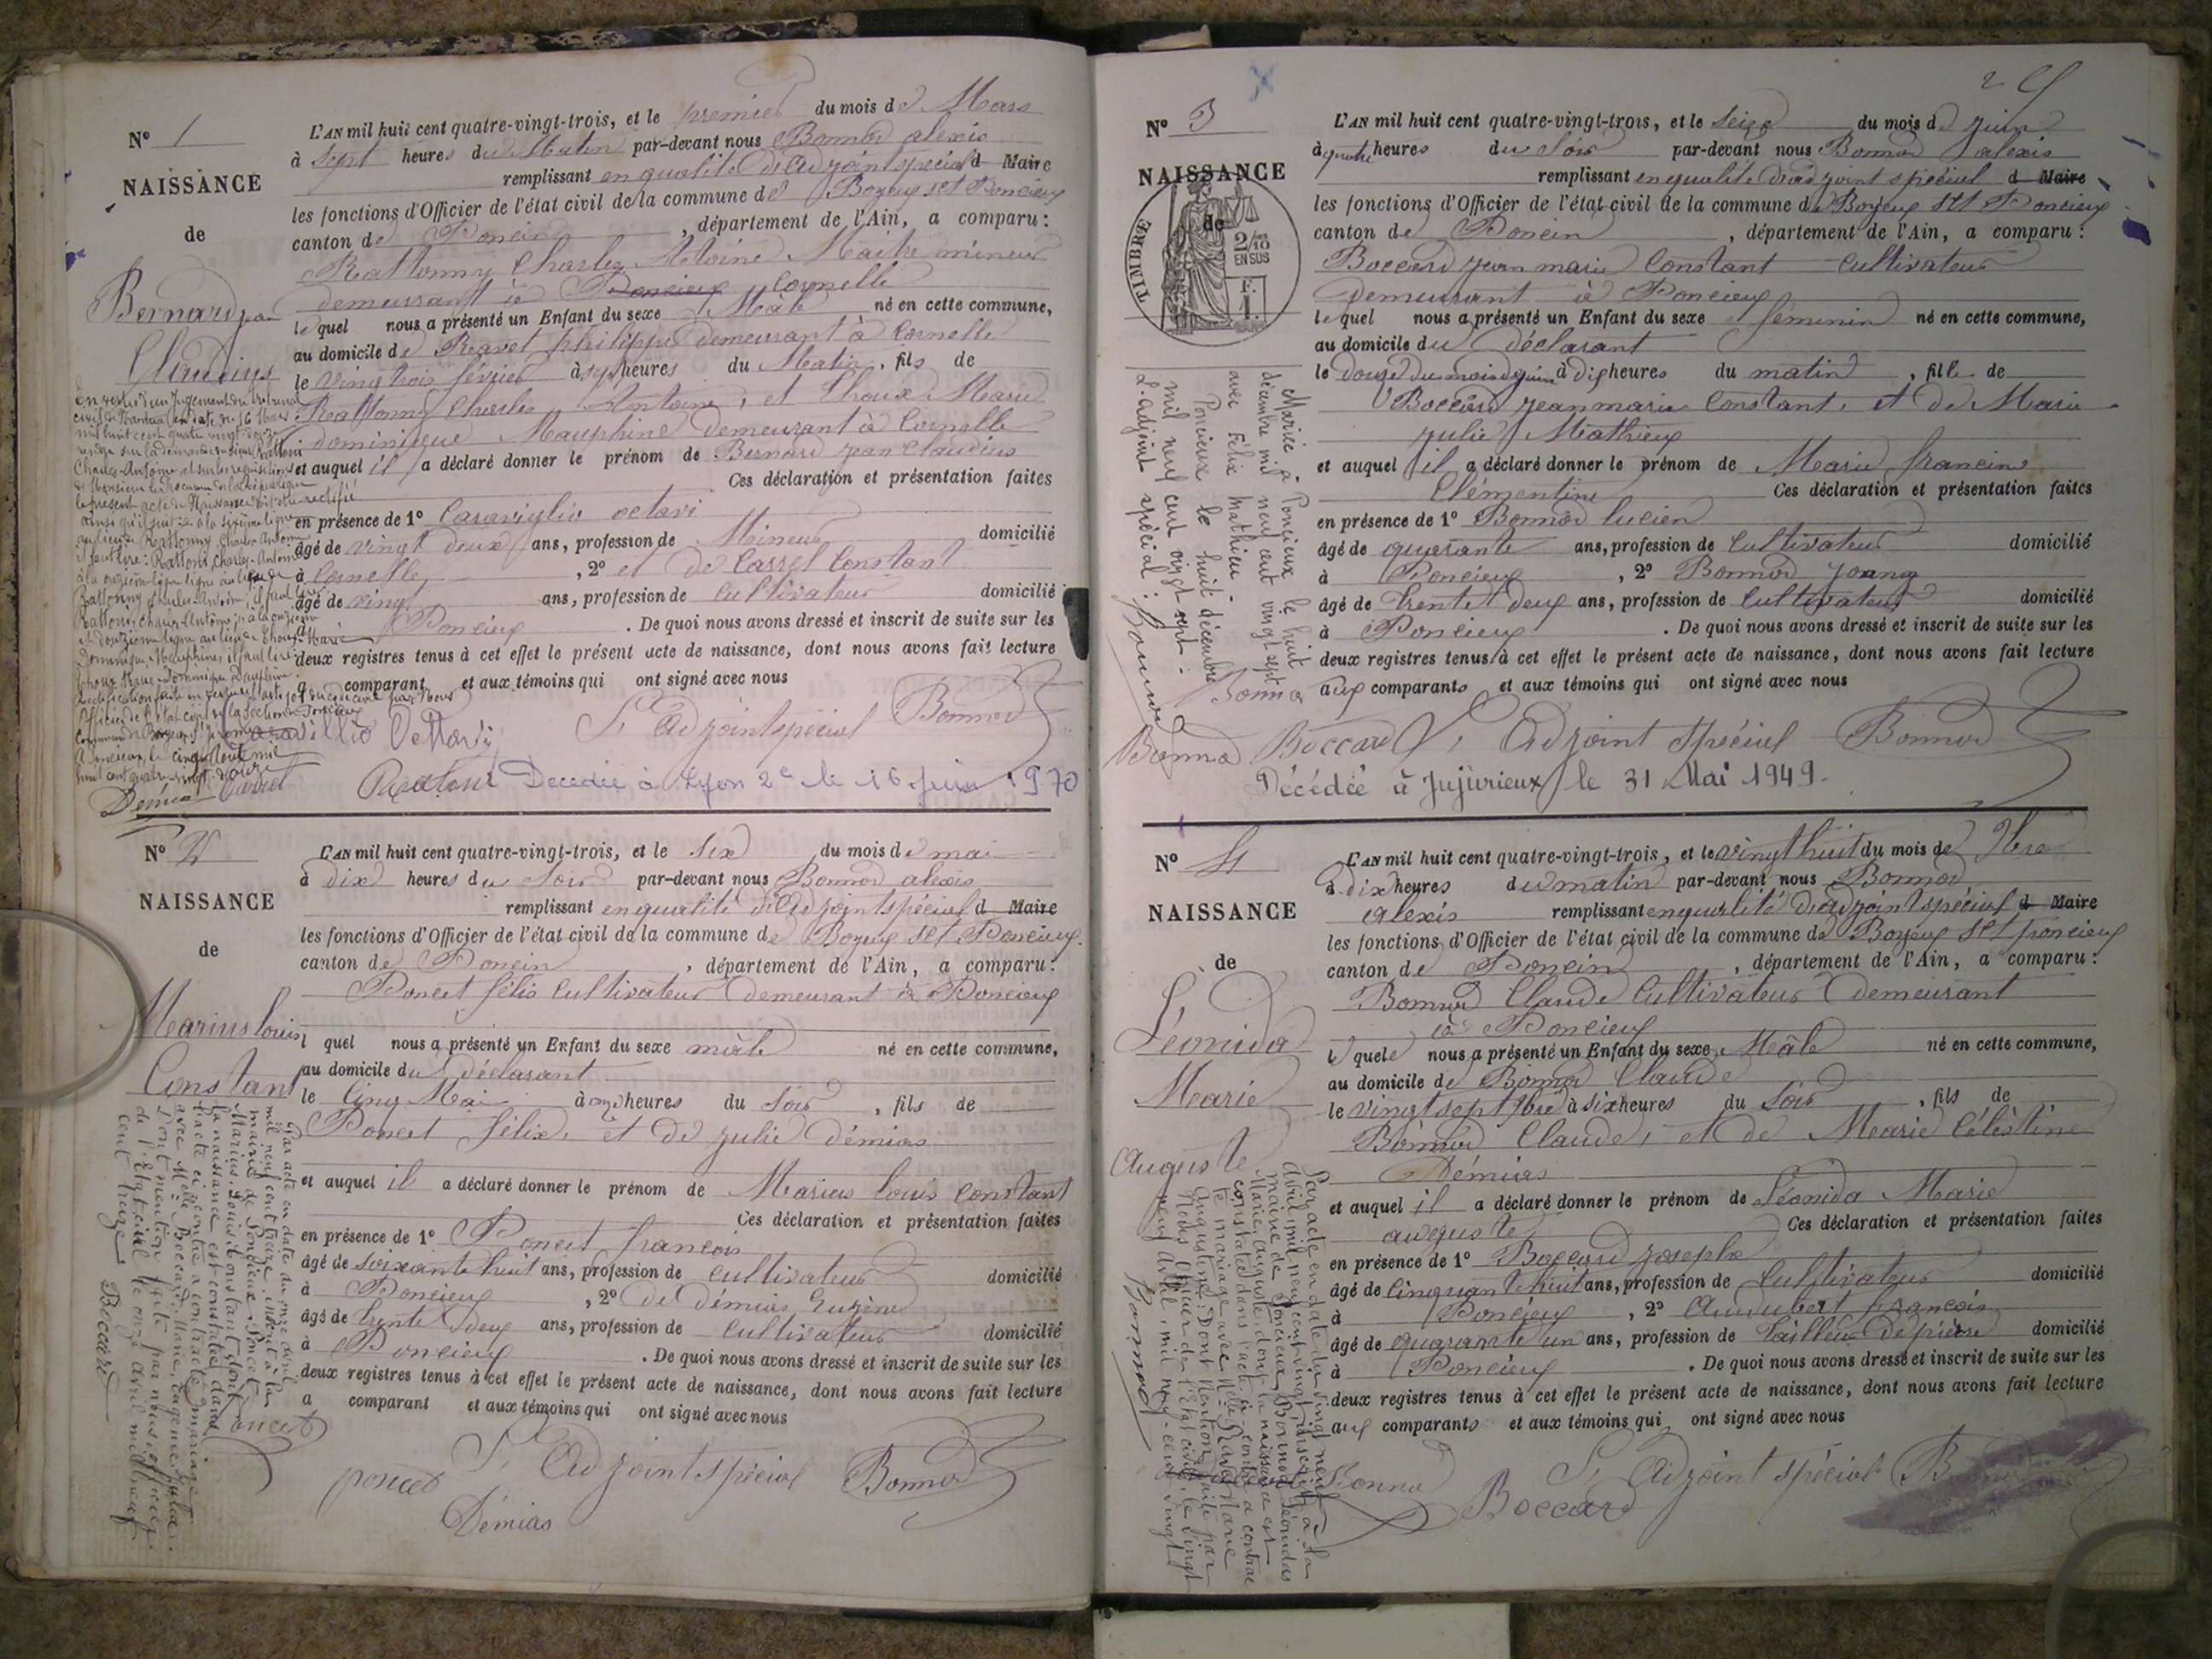 N° 1
NAISSANCE
de
Bernard jean
Claudius
L'AN mil huit cent quatre-vingt-trois, et le premier du mois de Mars
à sept heures du Matin par-devant nous Bonnod alexis
remplissant en qualité d'Adjoint spécial d Maire
les fonctions d'Officier de l'état civil de la commune de Boyeux st Poncieux
canton de Poncin , département de l'Ain, a comparu :
Rattonny Charles Antoine Maitre mineur
demeurant à Poncieux Cornelle
le quel nous a présenté un Enfant du sexe Mâle né en cette commune,
au domicile de Ravet philippe demeurant à Cornelle
le vingt trois février à sept heures du Matin, fils de
Rattonny Charles Antoine, et Choux Marie
dominique Mauphine demeurant à Cornelle
et auquel il a déclaré donner le prénom de Bernard jean Claudius
Ces déclaration et présentation faites
en présence de 1° Caraviglio octavi
âgé de vingt deux ans, profession de Mineur domicilié
à Cornelle , 2° et de Carrel Constant
âgé de vingt ans, profession de Cultivateur domicilié
à Poncieux . De quoi nous avons dressé et inscrit de suite sur les
deux registres tenus à cet effet le présent acte de naissance, dont nous avons fait lecture
comparant et aux témoins qui ont signé avec nous
L'Adjoint spécial Bonnod
Decedée à Lyon 2e le 16 juin 1970
En vertu d'un jugement du tribunal
civil de Nantua en date du 16 Mars
mil huit cent quatre vingt douze
rendu sur la demande du sieur Rattoni
Charles-Antoine et sur les requisitions
de Monsieur le Procureur de la République
le présent acte de Naissance doit être rectifié
ainsi qu'il suit : à la sixième ligne
au lieu de Rattonny Charles Antoine
il faut lire : Rattoni, Charles-Antoine
à la onzième ligne au lieu de
Rattonny Charles-Antoine, il faut lire
Rattoni, Charles-Antoine, à la onzième
et douzième ligne au lieu de Choux-Marie
Dominique-Mauphine, il faut lire
Choux Marie-Dominique Dauphine.
N° 2
NAISSANCE
de
Marius louis
Constant
L'AN mil huit cent quatre-vingt-trois, et le six du mois de mai
à dix heures du Soir par-devant nous Bonnod alexis
remplissant en qualité d'Adjoint spécial d Maire
les fonctions d'Officier de l'état civil de la commune de Boyeux st Poncieux
canton de Poncin , département de l'Ain, a comparu :
Poncet félix Cultivateur demeurant à Poncieux
l quel nous a présenté un Enfant du sexe mâle né en cette commune,
au domicile du déclarant
le Cinq Mai à onze heures du Soir , fils de
Poncet félix, et de julie démias
et auquel il a déclaré donner le prénom de Marius louis Constant
Ces déclaration et présentation faites
en présence de 1° Poncet françois
âgé de soixante huit ans, profession de Cultivateur domicilié
à Poncieux , 2° de démias Eugène
âgé de trente deux ans, profession de Cultivateur domicilié
à Poncieux . De quoi nous avons dressé et inscrit de suite sur les
deux registres tenus à cet effet le présent acte de naissance, dont nous avons fait lecture
a comparant et aux témoins qui ont signé avec nous
Poncet
L'Adjoint spécial Bonnod
poncet
Démias
Par acte en date du onze avril
mil neuf cent treize inscrit à la
mairie de Poncieux, Poncet
Marius, Louis, Constant dont
la naissance est constatée dans
l'acte ci contre a contracté mariage
avec Melle Boccard, Marie, Eugénie, Julia.
Dont mention faite par nous, officier
de l'Etat civil le onze avril mil neuf
cent treize Boccard
2
N° 3
NAISSANCE
de
TIMBRE
2/10
EN SUS
F.
1.
L'AN mil huit cent quatre-vingt-trois, et le Seize du mois de juin
à quatre heures du Soir par-devant nous Bonnod alexis
remplissant en qualité d'adjoint spécial d Maire
les fonctions d'Officier de l'état civil de la commune de Boyeux st Poncieux
canton de Poncin , département de l'Ain, a comparu :
Boccard jean marie Constant Cultivateur
demeurant à Poncieux
le quel nous a présenté un Enfant du sexe féminin né en cette commune,
au domicile du déclarant
le douze du mois de juin à dix heures du matin , fille de
Boccard jean marie Constant, et de Marie
julie Mathieux
et auquel il a déclaré donner le prénom de Marie francine
Clémentine Ces déclaration et présentation faites
en présence de 1° Bonnod lucien
âgé de quarante ans, profession de Cultivateur domicilié
à Poncieux , 2° Bonnod
âgé de trente deux ans, profession de Cultivateur domicilié
à Poncieux . De quoi nous avons dressé et inscrit de suite sur les
deux registres tenus à cet effet le présent acte de naissance, dont nous avons fait lecture
aux comparants et aux témoins qui ont signé avec nous
Bonnod Boccard L'Adjoint spécial Bonnod
Décédée à Jujurieux le 31 Mai 1949.
Mariée à Poncieux le huit
décembre mil neuf cent vingt sept
avec Félix Mathieu.
Poncieux le huit décembre
mil neuf cent vingt sept.
L'adjoint spécial : Bonnod
N° 4
NAISSANCE
de
Léonida
Marie
Auguste
L'AN mil huit cent quatre-vingt-trois, et le vingt huit du mois de 7bre
à dix heures du matin par-devant nous Bonnod
alexis remplissant en qualité d'adjoint spécial d Maire
les fonctions d'Officier de l'état civil de la commune de Boyeux st poncieux
canton de Poncin , département de l'Ain, a comparu :
Bonnod Claude Cultivateur demeurant
à Poncieux
le quel nous a présenté un Enfant du sexe Mâle né en cette commune,
au domicile de Bonnod Claude
le vingt sept 7bre à six heures du Soir , fils de
Bonnod Claude, et de Marie Célèstine
Démias
et auquel il a déclaré donner le prénom de Léonida Marie
auguste Ces déclaration et présentation faites
en présence de 1° Boccard joseph
âgé de cinquante huit ans, profession de Cultivateur domicilié
à Poncieux , 2° Audubert françois
âgé de quarante un ans, profession de tailleur de pierre domicilié
à Poncieux . De quoi nous avons dressé et inscrit de suite sur les
deux registres tenus à cet effet le présent acte de naissance, dont nous avons fait lecture
aux comparants et aux témoins qui ont signé avec nous
Bonnod Boccard L'Adjoint spécial
Par acte en date du vingt neuf
avril mil neuf cent vingt, inscrit à la
mairie de Poncieux, Bonnod Léonida
Marie, Auguste, dont la naissance est
constatée dans l'acte ci contre a contrac
té mariage avec Marie
Augustine. Dont Mention faite par
Nous Officier de l'Etat civil, le vingt
neuf Avril, mil neuf-cent vingt
Bonnod